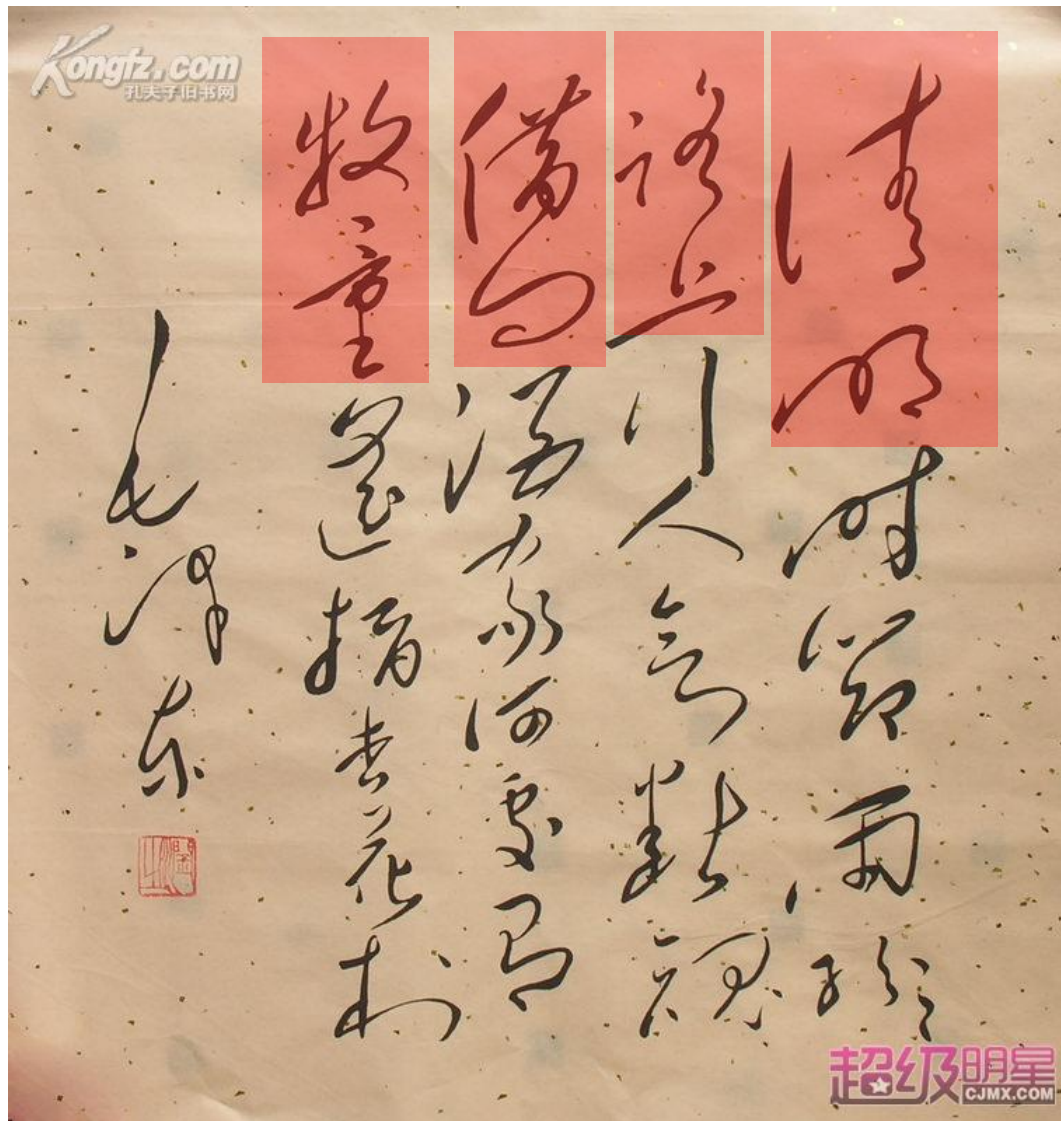 Kongfz.com
孔夫子旧书网
清明時節雨紛紛
路上行人欲斷魂
借問酒家何處有
牧童遙指杏花村
毛澤東
超级明星
CJMX.COM